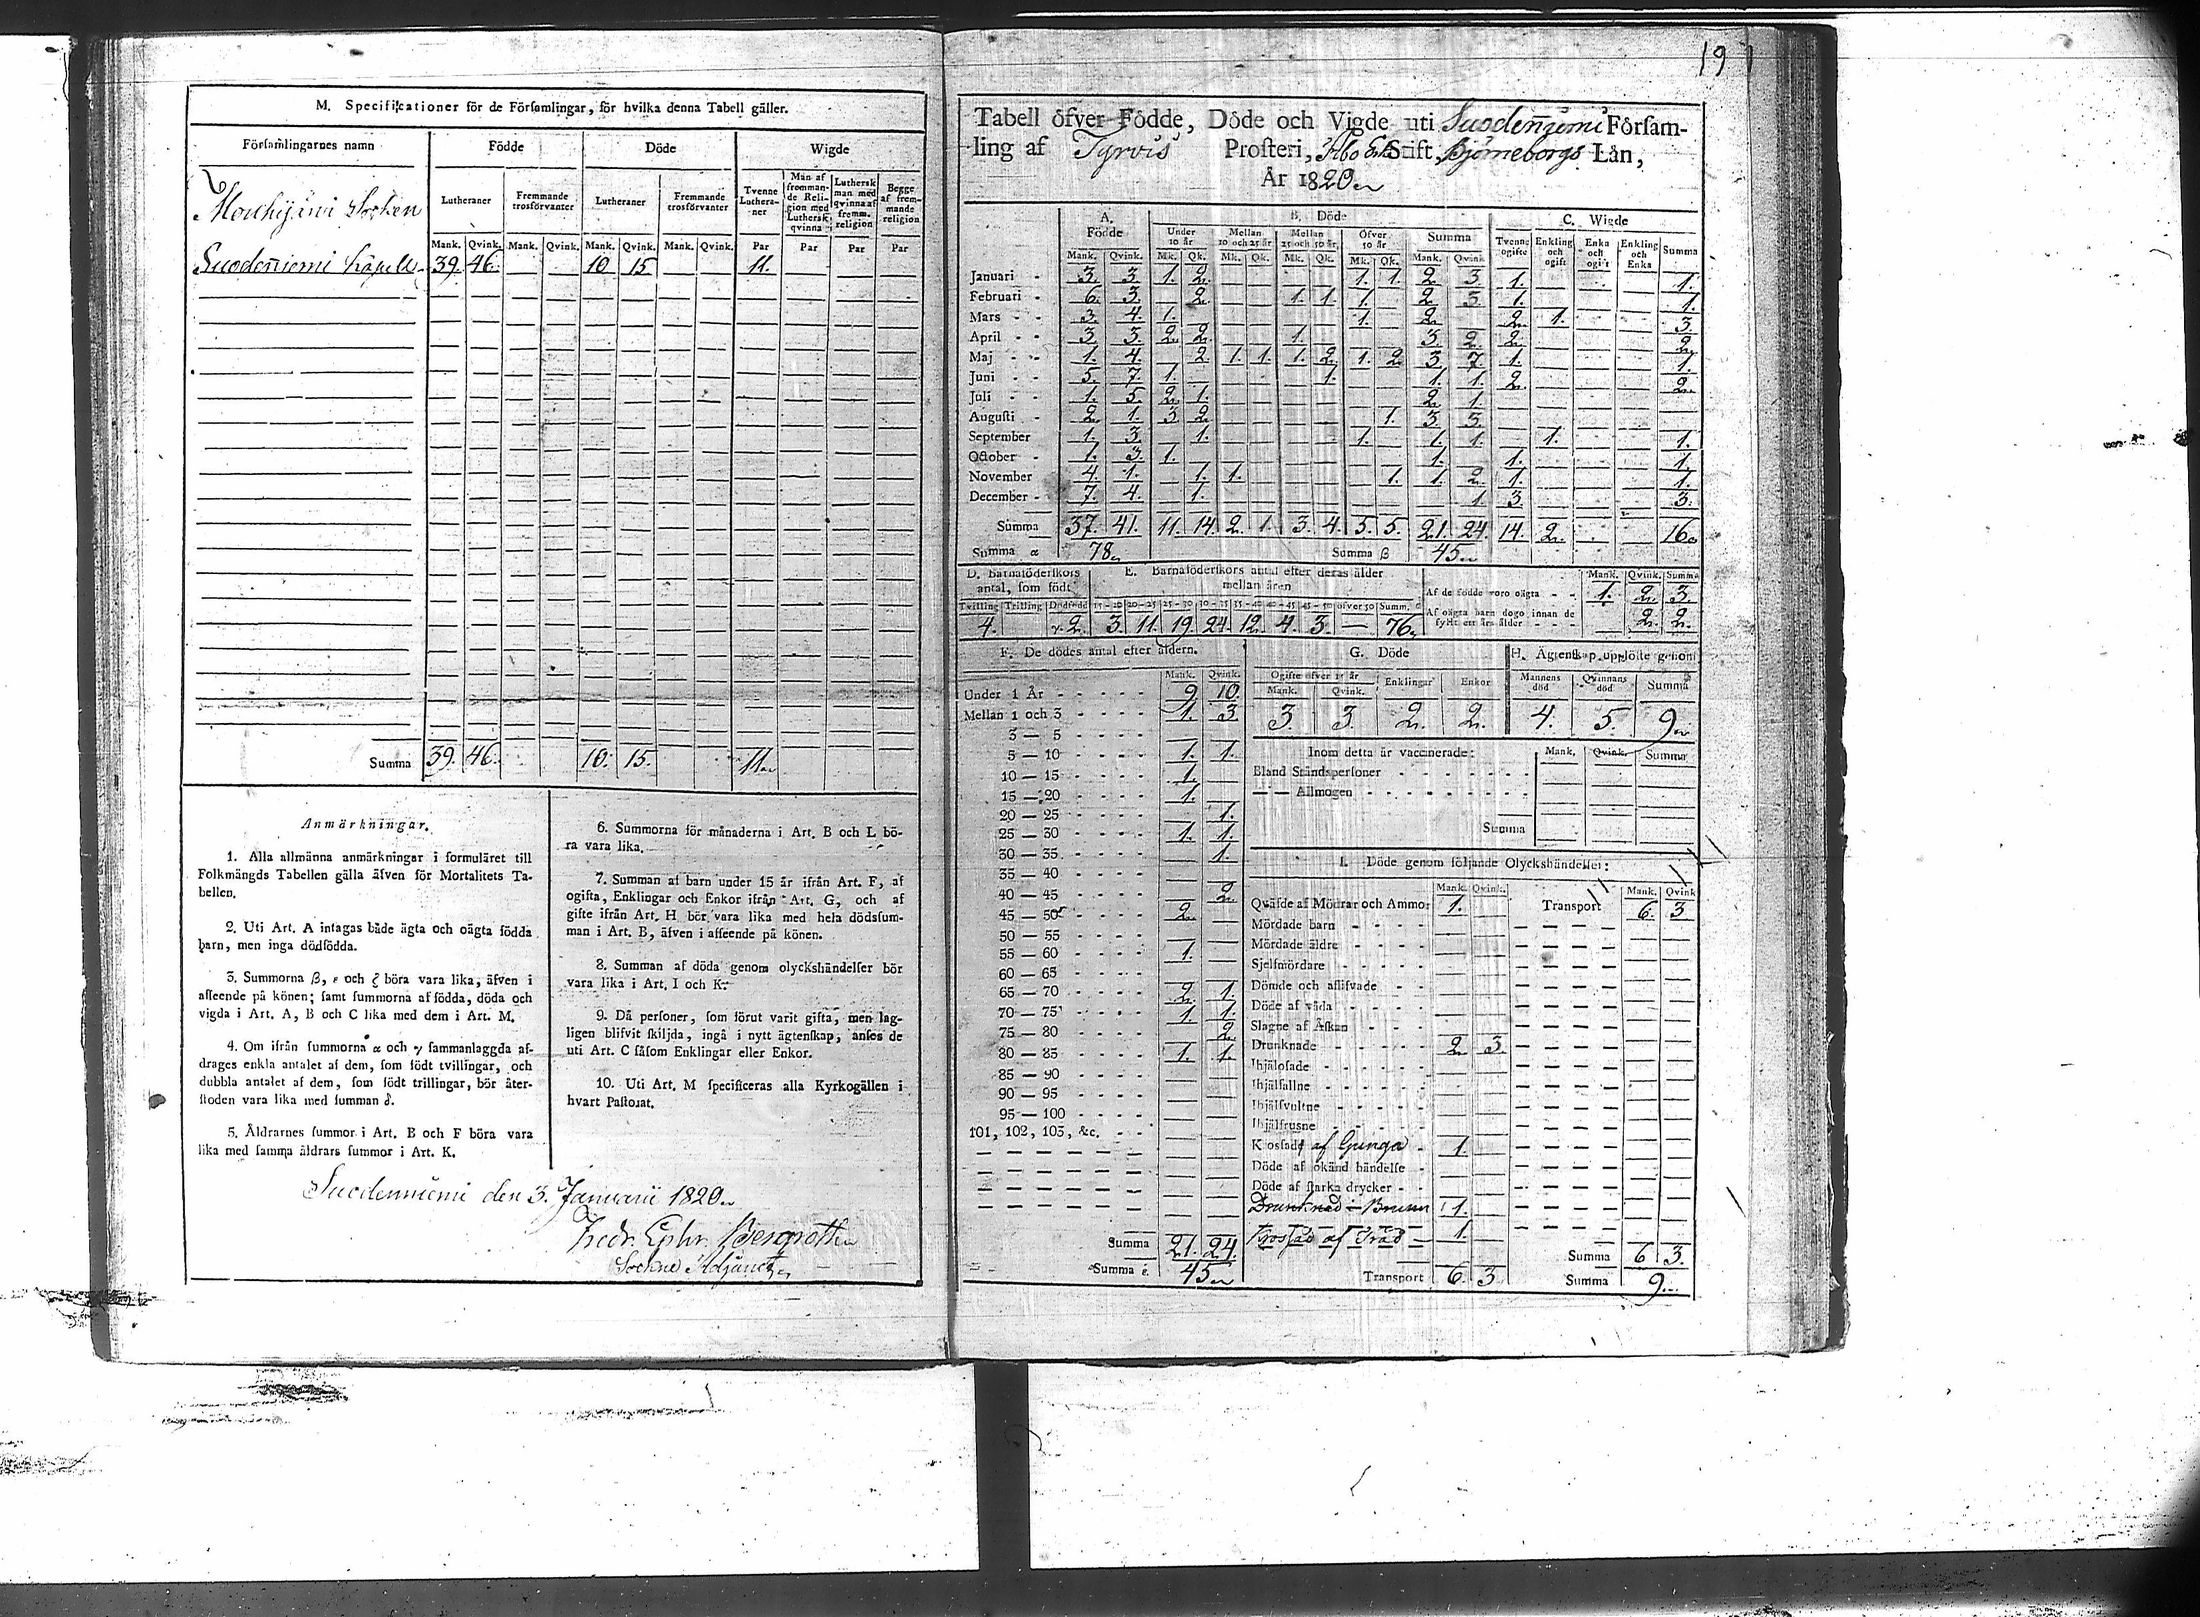 M. Specificationer för de Församlingar, för hvilka denna Tabell gäller.
Församlingarnes namn Födde Döde Wigde
Lutheraner Fremmande trosförvanter Lutheraner Fremmande trosförvanter Tvenne Lutheraner Man af fremmande Religion med Luthersk qvinna Luthersk man med qvinna af fremm. religion Begge af fremmande religion
Mank. Qvink. Mank. Qvink. Mank. Qvink. Mank. Qvink. Par Par Par Par
Mouhijärvi Socken
Suodenniemi Capell 39. 46. 10 15 11.
Summa 39. 46. 10. 15. 11
Anmärkningar.
1. Alla allmänna anmärkningar i formuläret till
Folkmängds Tabellen gälla äfven för Mortalitets Ta-
bellen.
2. Uti Art. A intagas både ägta och oägta födda
barn, men inga dödfödda.
3. Summorna β, ε och ζ böra vara lika, äfven i
afseende på könen; samt summorna af födda, döda och
vigda i Art. A, B och C lika med dem i Art. M.
4. Om ifrån summorna α och γ sammanlaggda af-
drages enkla antalet af dem, som födt tvillingar, och
dubbla antalet af dem, som födt trillingar, bör åter-
stoden vara lika med summan δ.
5. Åldrarnes summor i Art. B och F böra vara
lika med samma åldrars summor i Art. K.
6. Summorna för månaderna i Art. B och L bö-
ra vara lika.
7. Summan af barn under 15 år ifrån Art. F, af
ogifta, Enklingar och Enkor ifrån Art. G, och af
gifte ifrån Art. H bör vara lika med hela dödssum-
man i Art. B, äfven i afseende på könen.
8. Summan af döda genom olyckshändelser bör
vara lika i Art. I och K.
9. Då personer, som förut varit gifta, men lag-
ligen blifvit skiljda, ingå i nytt ägtenskap, anses de
uti Art. C såsom Enklingar eller Enkor.
10. Uti Art. M specificeras alla Kyrkogällen i
hvart Pastorat.
Suodenniemi den 3. Januarii 1820
Fredr. Ephr. Bergroth
Sockne Adjunct
19
Tabell öfver Födde, Döde och Vigde uti Suodenniemi Försam-
ling af Tyrvis Prosteri, Åbo Stift, Björneborgs Län,
År 1820
A. Födde B. Döde C. Wigde
Under 10 år Mellan 10 och 25 år Mellan 25 och 50 år Öfver 50 år Summa Tvenne ogifte Enkling och ogift Enka och ogift Enkling och Enka Summa
Mank. Qvink. Mk. Qk. Mk. Qk. Mk. Qk. Mk. Qk. Mank. Qvink.
Januari 3. 3. 1. 2. 1. 1. 2. 3. 1. 1.
Februari 6. 3. 2. 1. 1. 1. 2. 3. 1. 1.
Mars 3. 4. 1. 1. 2. 2. 1. 3.
April 3. 3. 2. 2. 1. 3. 2. 2. 2.
Maj 1. 4. 2. 1. 1. 1. 2. 1. 2. 3. 7. 1. 1.
Juni 5. 7. 1. 1. 1. 1. 2. 2.
Juli 1. 5. 2. 1. 2. 1.
Augusti 2. 1. 3. 2. 1. 3 3.
September 1. 3. 1. 1. 1. 1. 1. 1.
October 1. 3. 1. 1. 1. 1.
November 4. 1. 1. 1. 1. 1. 2. 1. 1.
December 7. 4. 1. 1. 3. 3.
Summa 37. 41. 11. 14. 2. 1. 3. 4. 5. 5. 21. 24. 14. 2. 16
Summa α 78 Summa β 45
D. Barnaföderskors antal, som födt E. Barnaföderskors antal efter deras ålder mellan åren Mank. Qvink. Summa
Af de födde voro oägta 1. 2. 3.
Tvilling Trilling Dödfödd 15-20 20-25 25-30 30-35 35-40 40-45 45-50 öfver 50 Summ. δ
Af oägta barn dogo innan de fyllt ett års ålder 2. 2.
4. γ. 2. 3. 11. 19. 24. 12. 4. 3. — 76
F. De dödes antal efter åldern.
Mank. Qvink.
Under 1 År 9. 10.
Mellan 1 och 3 1. 3.
3 — 5
5 — 10 1. 1.
10 — 15 1.
15 — 20 1.
20 — 25 1.
25 — 30 1. 1.
30 — 35 1.
35 — 40
40 — 45 2.
45 — 50 2.
50 — 55
55 — 60 1.
60 — 65
65 — 70 2. 1.
70 — 75 1. 1.
75 — 80 2.
80 — 85 1. 1.
85 — 90
90 — 95
95 — 100
101, 102, 103, &c.
Summa 21. 24.
Summa ε. 45
G. Döde
Ogifte öfver 15 år Enklingar Enkor
Mank. Qvink.
3. 3. 2. 2.
H. Ägtenskap upplöste genom
Mannens död Qvinnans död Summa
4. 5. 9
Inom detta år vaccinerade: Mank. Qvink. Summa
Bland Ståndspersoner
— — Allmogen
Summa
I. Döde genom följande Olyckshändelser:
Mank. Qvink. Mank. Qvink
Qväfde af Mödrar och Ammor 1. Transport 6. 3
Mördade barn
Mördade äldre
Sjelfmördare
Dömde och aflifvade
Döde af våda
Slagne af Åskan
Drunknade 2. 3.
Ihjälosade
Ihjälfallne
Ihjälsvultne
Ihjälfrusne
Krossade af Gunga 1.
Döde af okänd händelse
Döde af starka drycker
Drunknad i Brunn 1.
Krossad af Träd 1.
Transport 6. 3.
Summa 6 3.
Summa 9